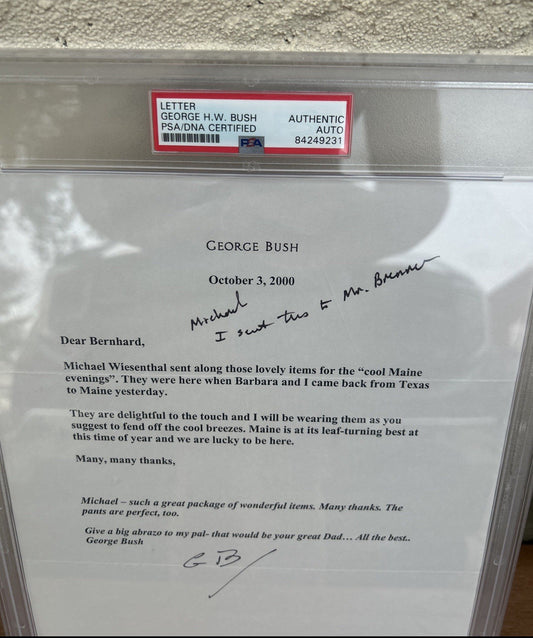 LETTER
GEORGE H.W. BUSH
PSA/DNA CERTIFIED
AUTHENTIC
AUTO
84249231
PSA
GEORGE BUSH
October 3, 2000
Michael
I sent this to Mr. Brenner
Dear Bernhard,
Michael Wiesenthal sent along those lovely items for the “cool Maine
evenings”. They were here when Barbara and I came back from Texas
to Maine yesterday.
They are delightful to the touch and I will be wearing them as you
suggest to fend off the cool breezes. Maine is at its leaf-turning best at
this time of year and we are lucky to be here.
Many, many thanks,
Michael – such a great package of wonderful items. Many thanks. The
pants are perfect, too.
Give a big abrazo to my pal- that would be your great Dad… All the best..
George Bush
G B